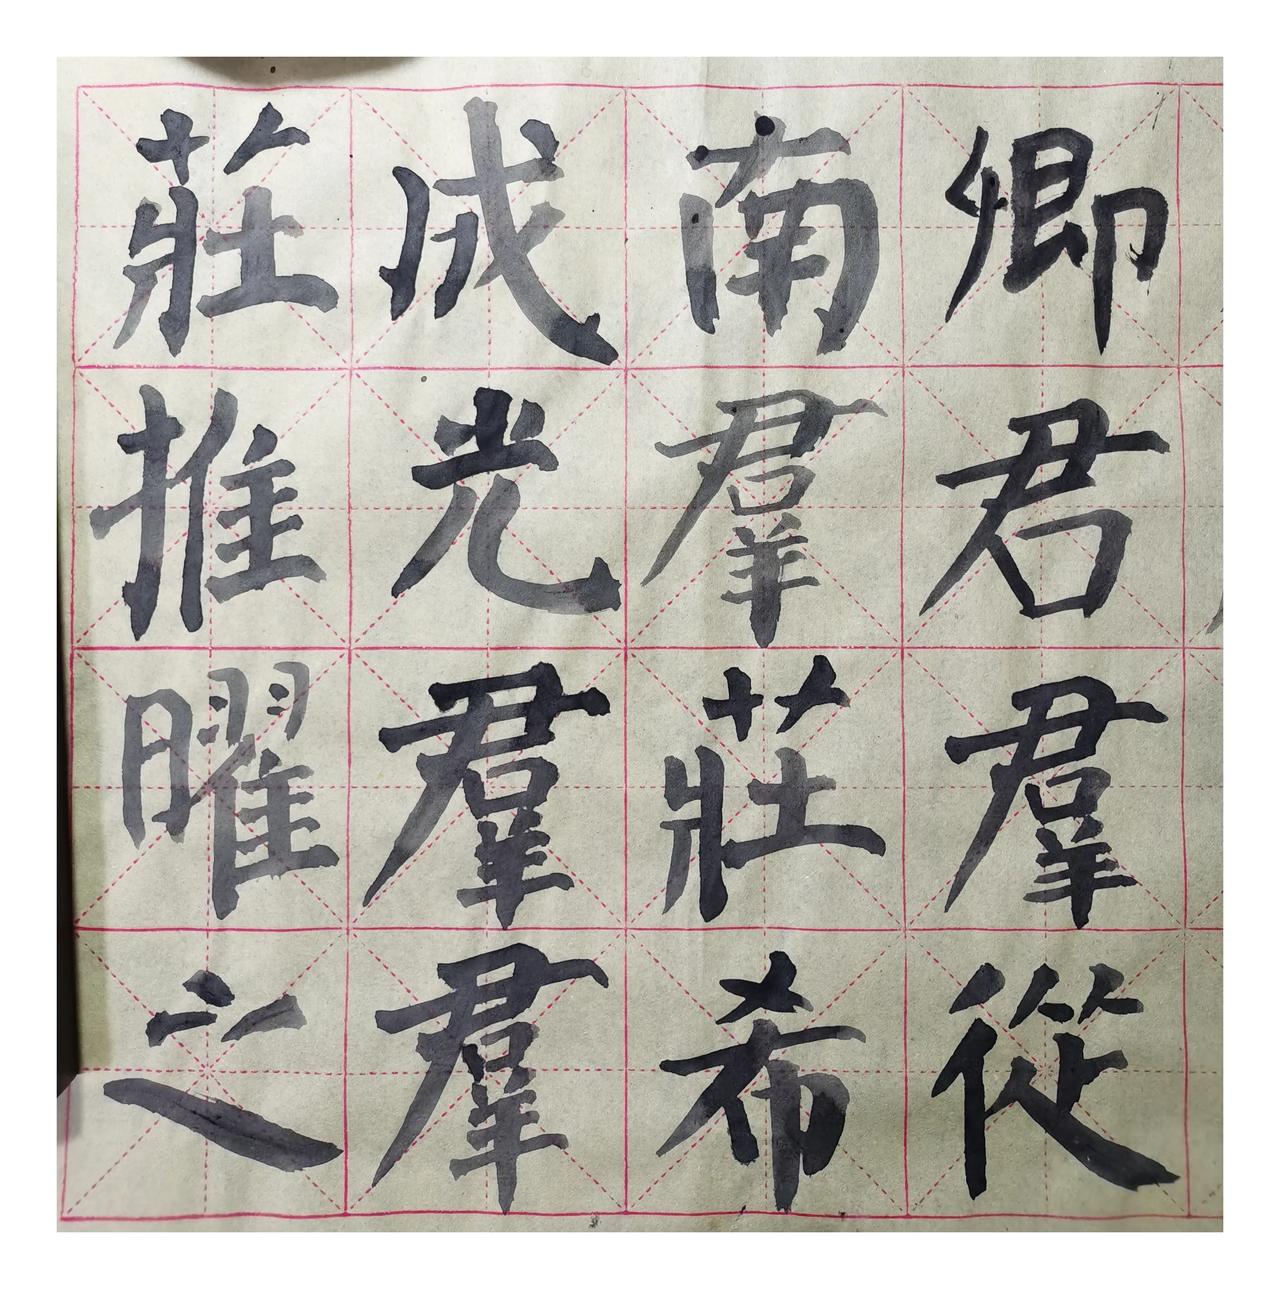 卿君羣從
南羣莊希
成光羣羣
莊推曜之